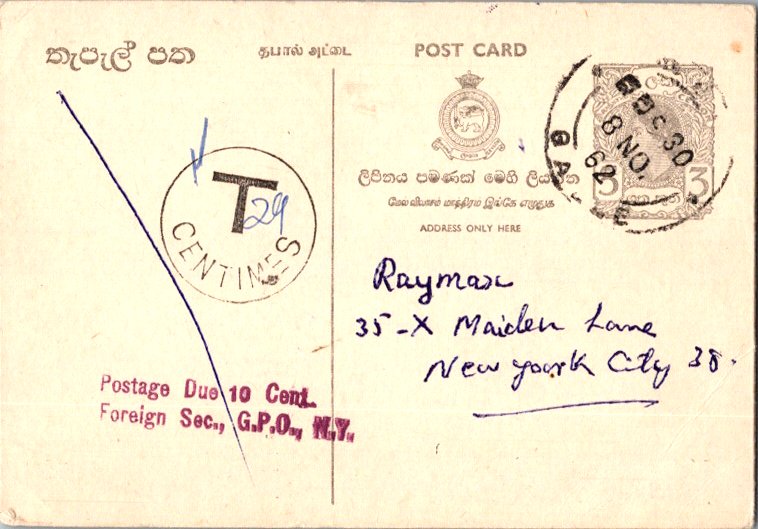 තැපැල් පත
தபால் அட்டை
POST CARD
ලිපිනය පමණක් මෙහි ලියන්න
மேல்விலாசம் மாத்திரம் இங்கே எழுதுக
ADDRESS ONLY HERE
3 3
8 NO.
62
T
29
CENTIMES
Raymax
35-X Maiden Lane
New York City 38.
Postage Due 10 Cent.
Foreign Sec., G.P.O., N.Y.